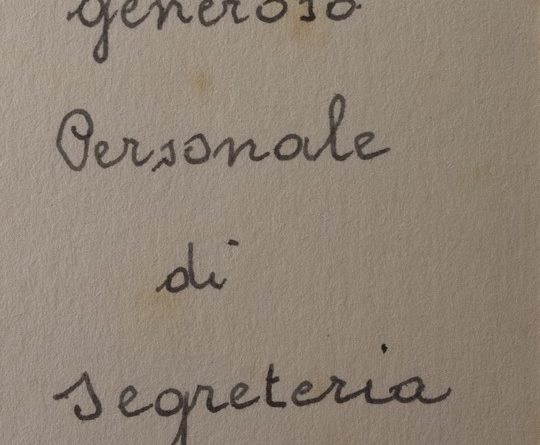 generoso
Personale
di
segreteria